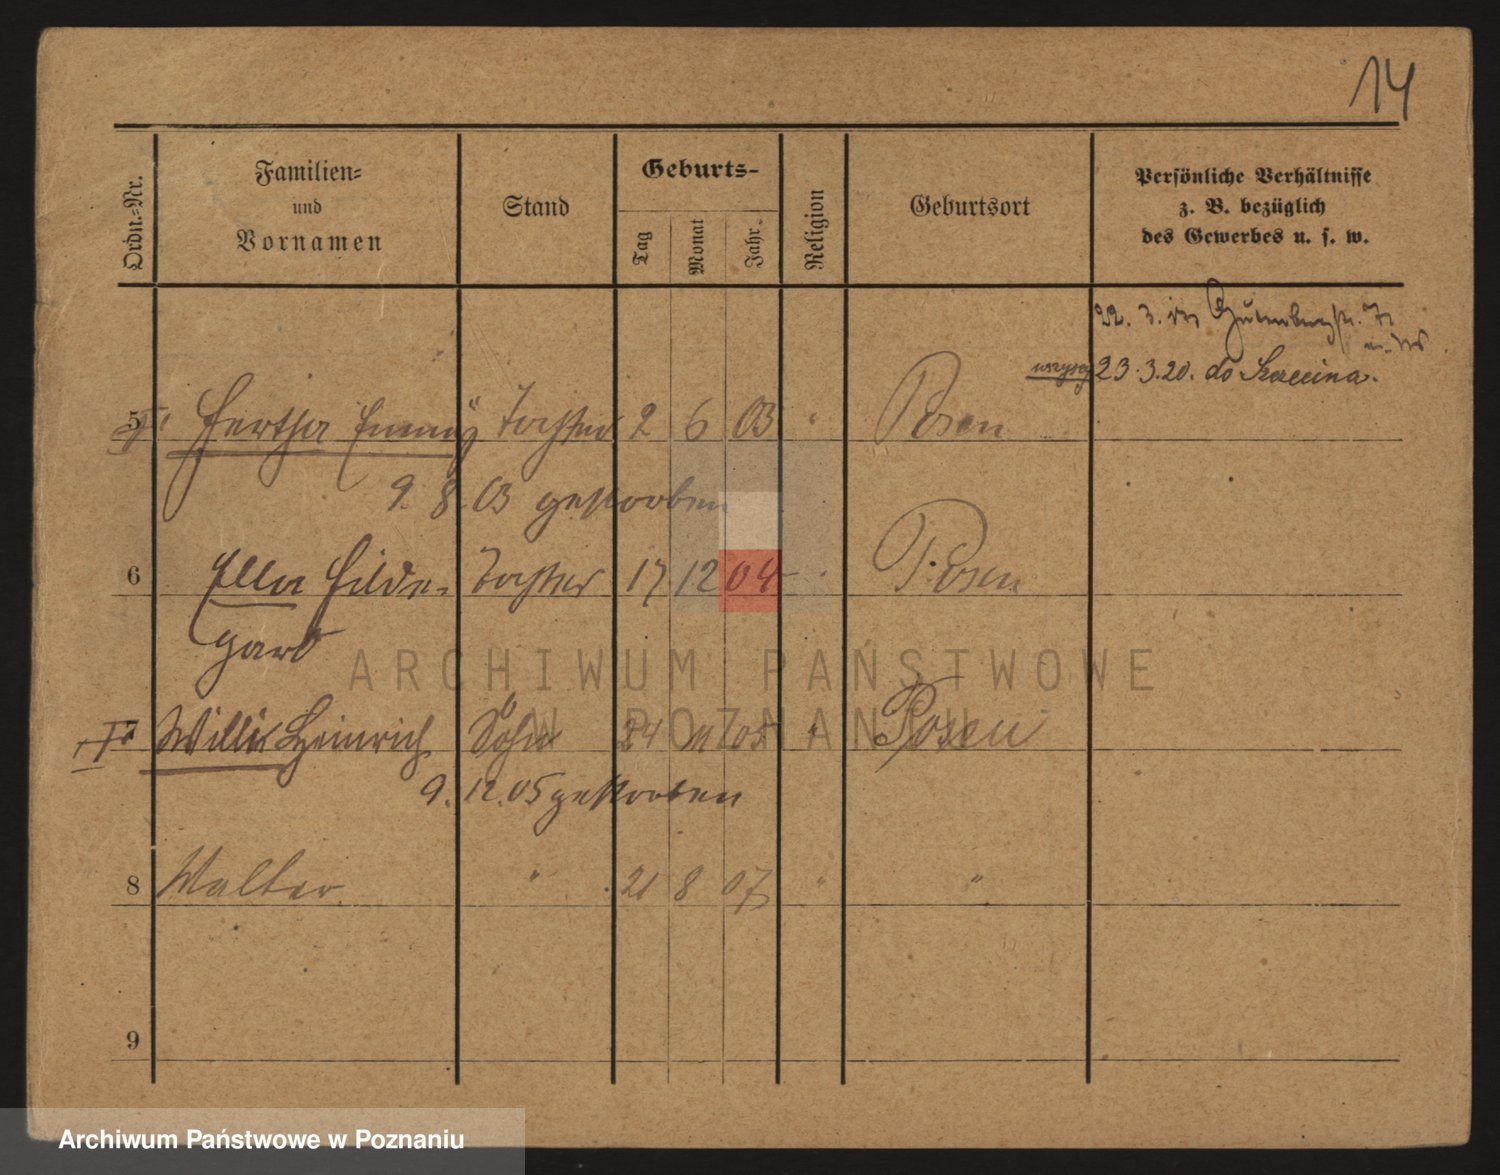 14
Ordn.-Nr.
Familien-
und
Vornamen
Stand
Geburts-
Tag
Monat
Jahr-
Religion
Geburtsort
Persönliche Verhältnisse
z. B. bezüglich
des Gewerbes u. s. w.
22. 3.
23.3.20. do
5 Hertha Emmy Tochter 2 6 03 " Posen
9. 8. 03 gestorben
6 Ella Hilde- Tochter 17 12 04 " Posen
gard
7 Willi Heinrich Sohn 24 11 05 " Posen
9. 12. 05 gestorben
8 Walter " 21 8 07 " "
9
ARCHIWUM PAŃSTWOWE
W POZNANIU
Archiwum Państwowe w Poznaniu